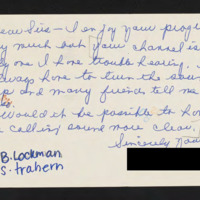 Dear Sirs - I enjoy your progr
y much but your channel is
ly one I have trouble hearing. I
ways have to turn the sou
p and many friends tell me
Would it be possible to ha
calling sound more clear.
Sincerely
B. Lockman
S. Trahern